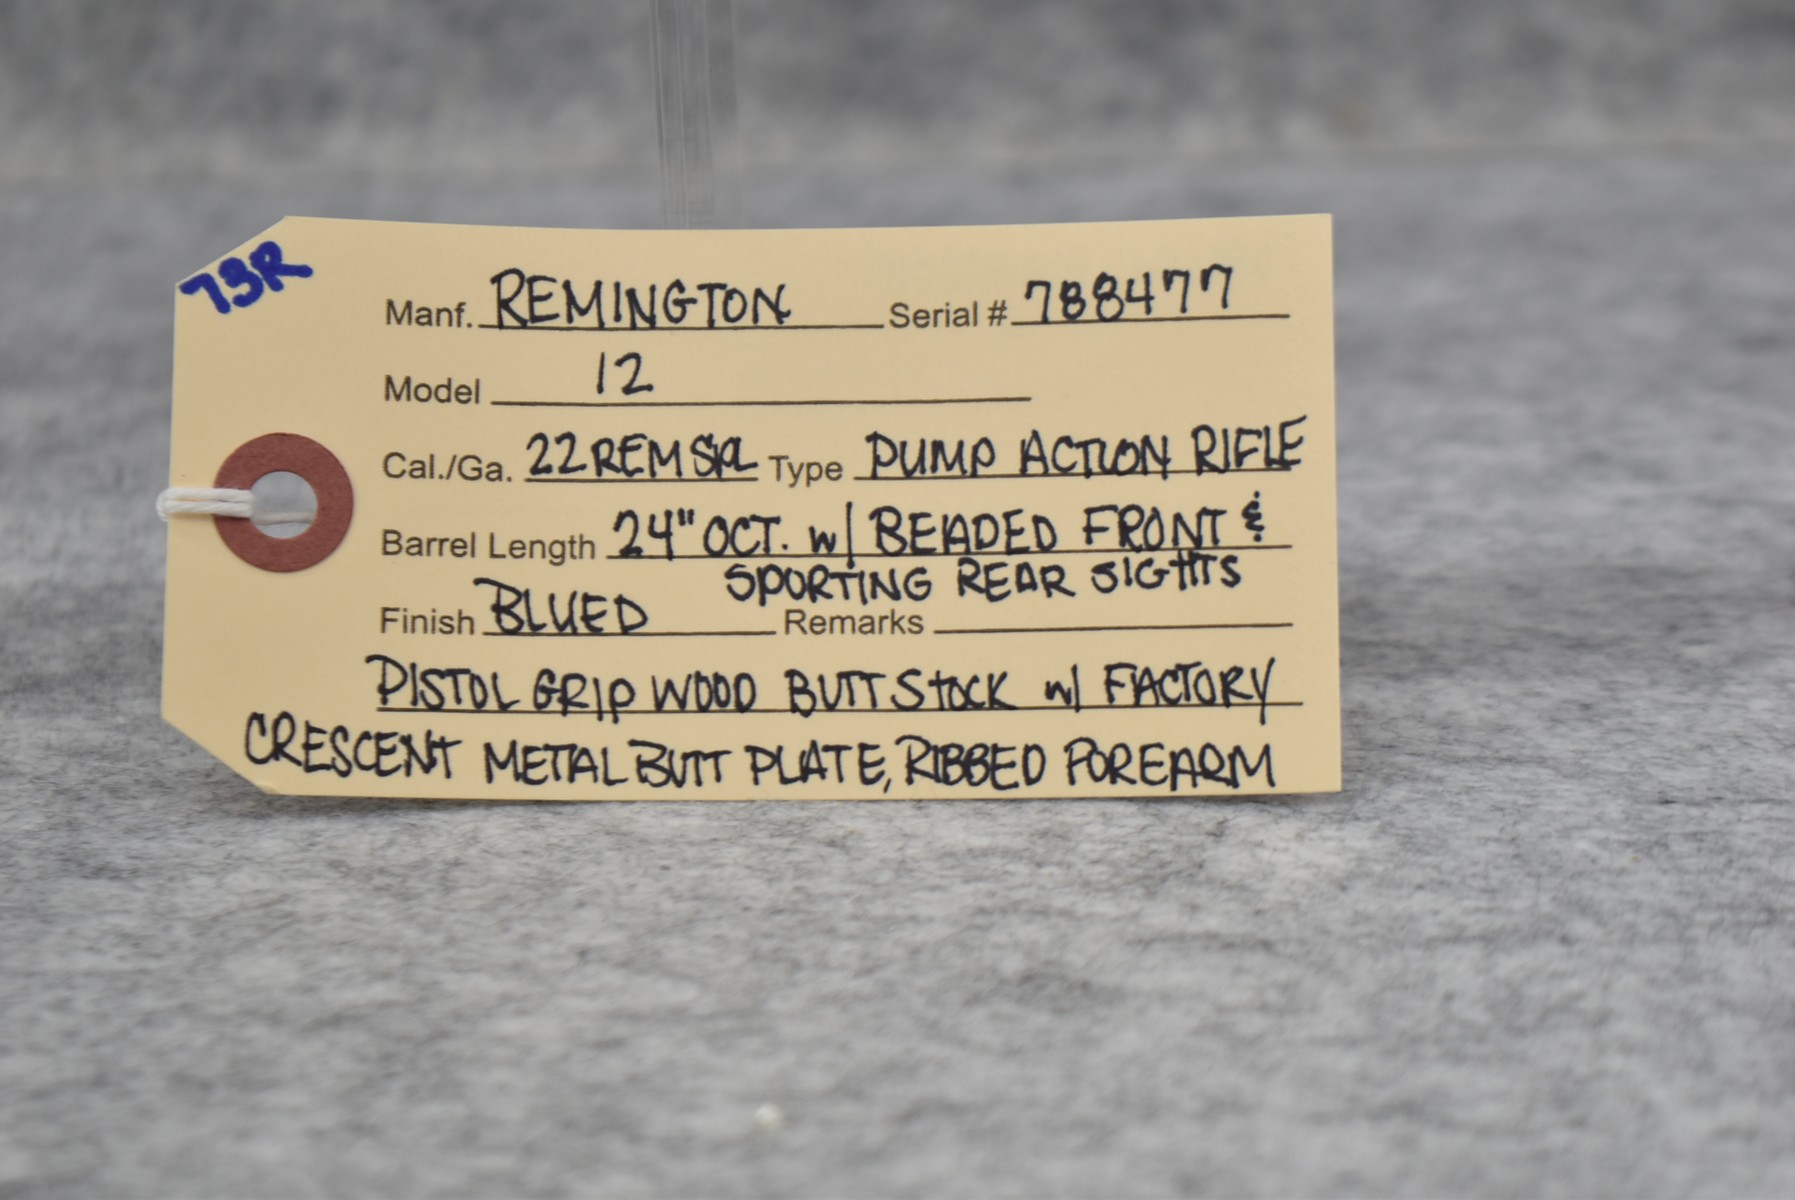 73R
Manf. REMINGTON Serial # 788477
Model 12
Cal./Ga. 22 REM SPL Type PUMP ACTION RIFLE
Barrel Length 24" OCT. w/ BEADED FRONT &
SPORTING REAR SIGHTS
Finish BLUED Remarks
PISTOL GRIP WOOD BUTT STOCK w/ FACTORY
CRESCENT METAL BUTT PLATE, RIBBED FOREARM